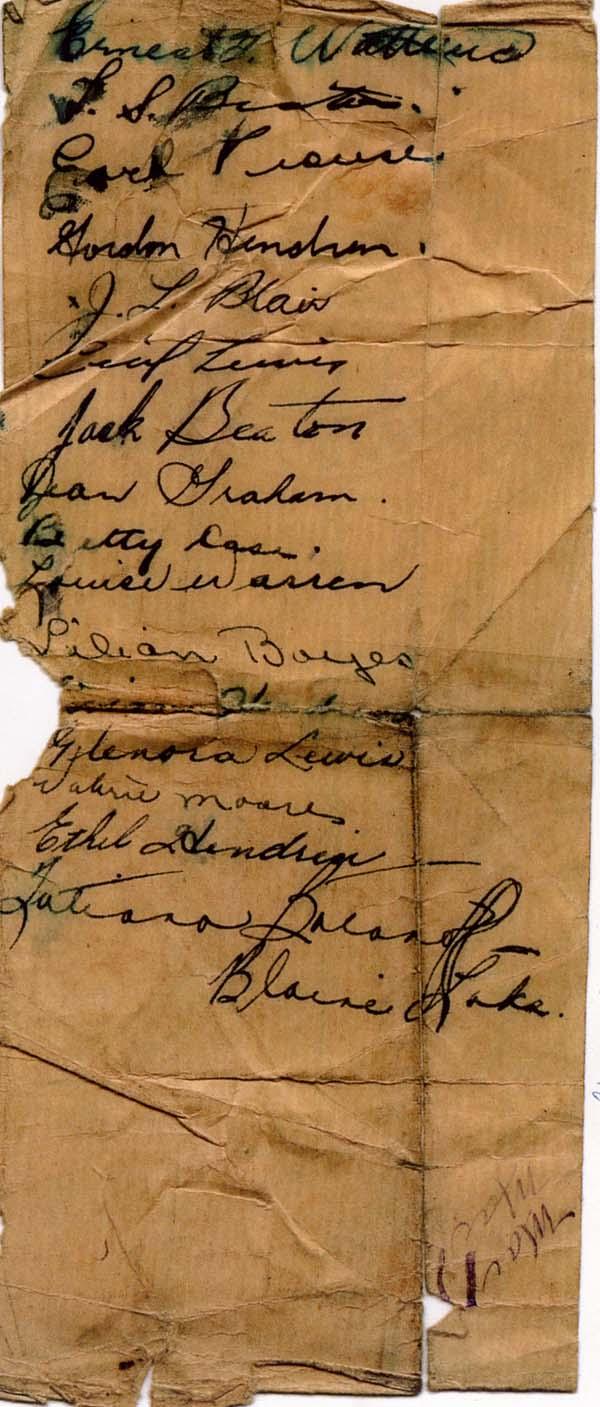 Ernest F. Watkins
S. Beaton.
Earl Prouse.
Gordon Hendren.
J. L. Blair
Cecil Lewis
Jack Beaton
Jean Graham.
Betty Case.
Louise Warren
Lilian Boyes
Glenora Lewis
Valerie Moores
Ethel Hendren
Tatiana
Blaine Lake.